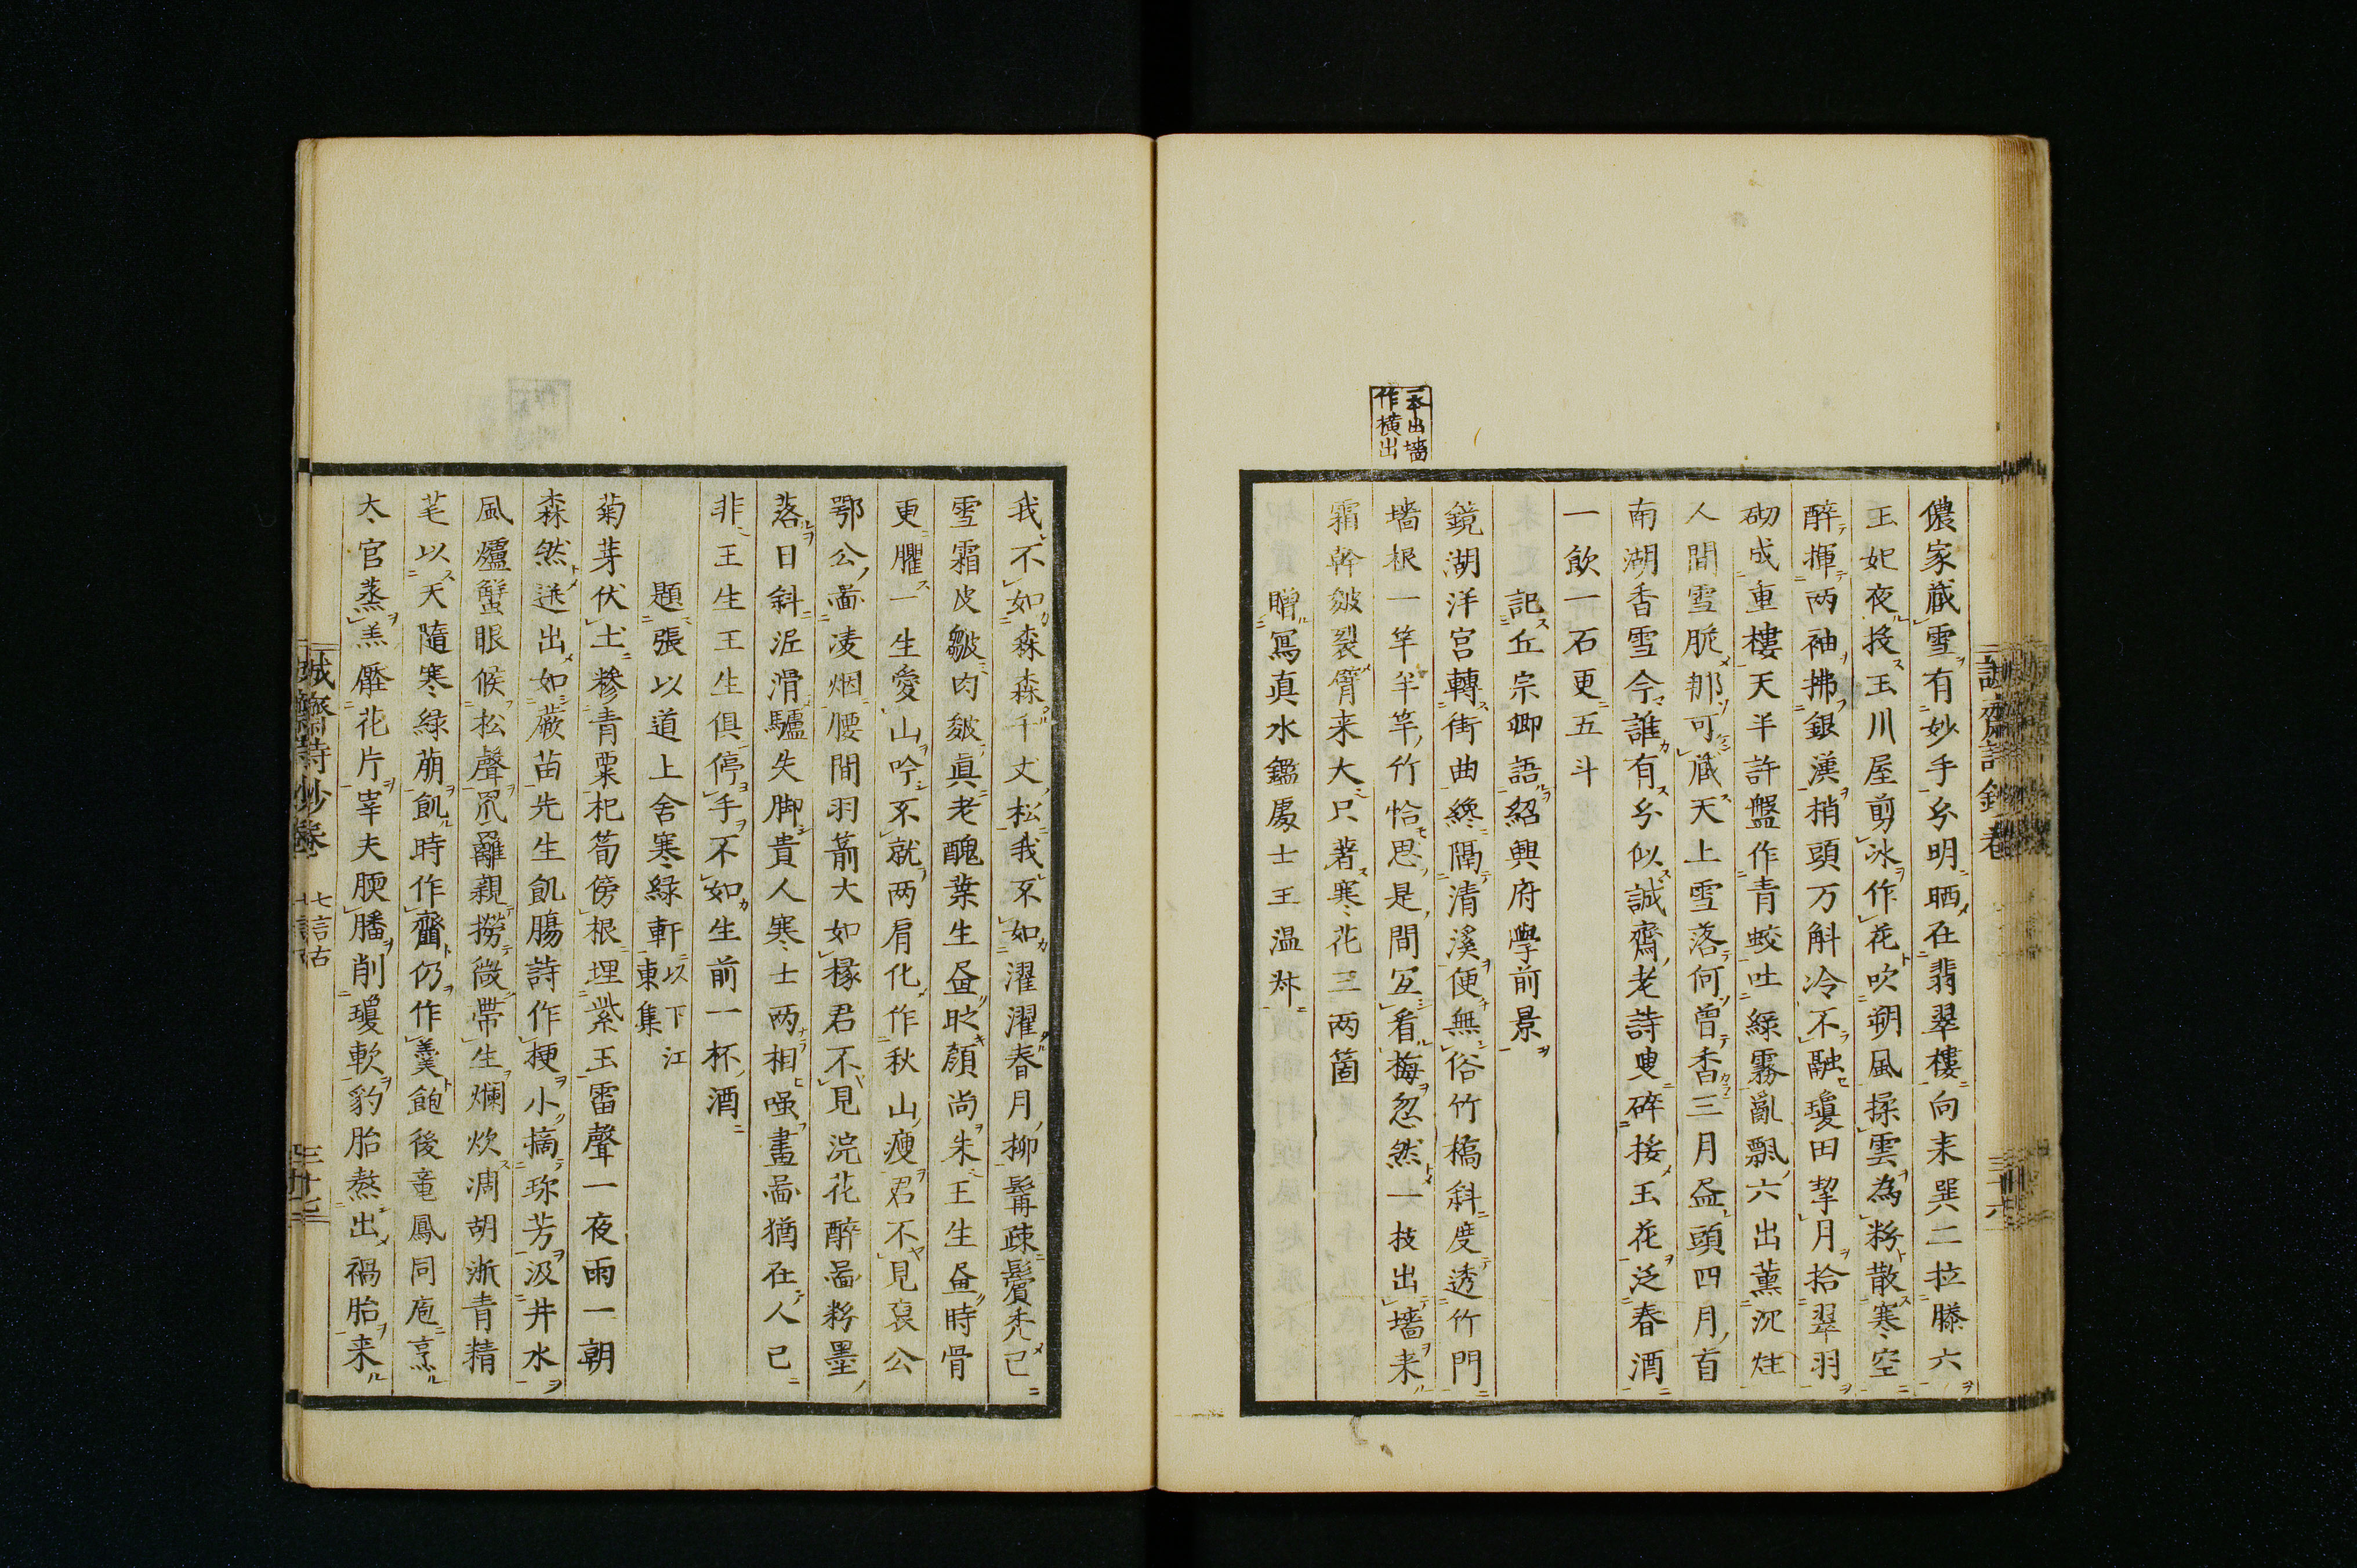 儂家藏雪有妙手分明晒在翡翠樓向来巽二拉滕六
玉妃夜投玉川屋剪冰作花吹朔風揉雲為粉散寒空
醉揮两袖拂銀漢梢頭万斛冷不融瓊田挈月拾翠羽
砌成重樓天半許盤作青蛟吐綠霧亂飄六出薰沉炷
人間雪脆那可藏天上雪落何曽香三月盡頭四月首
南湖香雪今誰有分似誠齋老詩叟碎挼玉花泛春酒
一飲一石更五斗
記丘宗卿語紹興府學前景
鏡湖泮宮轉街曲纔隔清溪便無俗竹橋斜度透竹門
墻根一竿半竿竹恰思是間宜看梅忽然一技出墻来
霜幹皴裂臂来大只著寒花三两箇
贈寫真水鑑處士王温叔
一本出墻
作横出
誠齋詩鈔卷
三十六
我不如森森千丈松我不如濯濯春月柳髯疎鬢禿已
雪霜皮皺肉皴真老醜葉生畫時顔尚朱王生畫時骨
更臞一生愛山吟不就两肩化作秋山瘦君不見襃公
鄂公啚凌烟腰間羽箭大如椽君不見浣花醉啚粉墨
落日斜泥滑驢失脚貴人寒士两相嗤畫啚猶在人已
非王生王生俱停手不如生前一杯酒
題張以道上舍寒綠軒以下江
東集
菊芽伏土糝青粟杞筍傍根埋紫玉雷聲一夜雨一朝
森然迸出如蕨苗先生飢膓詩作梗小摘珎芳汲井水
風爐蟹眼候松聲罛䍦親撈微帶生爛炊凋胡淅青精
芼以天隨寒綠萠飢時作齏仍作羹飽後童鳳同庖烹
太官蒸羔壓花片宰夫腝膰削瓊軟豹胎熬出禍胎来
誠齋詩鈔卷
七言古
三十七